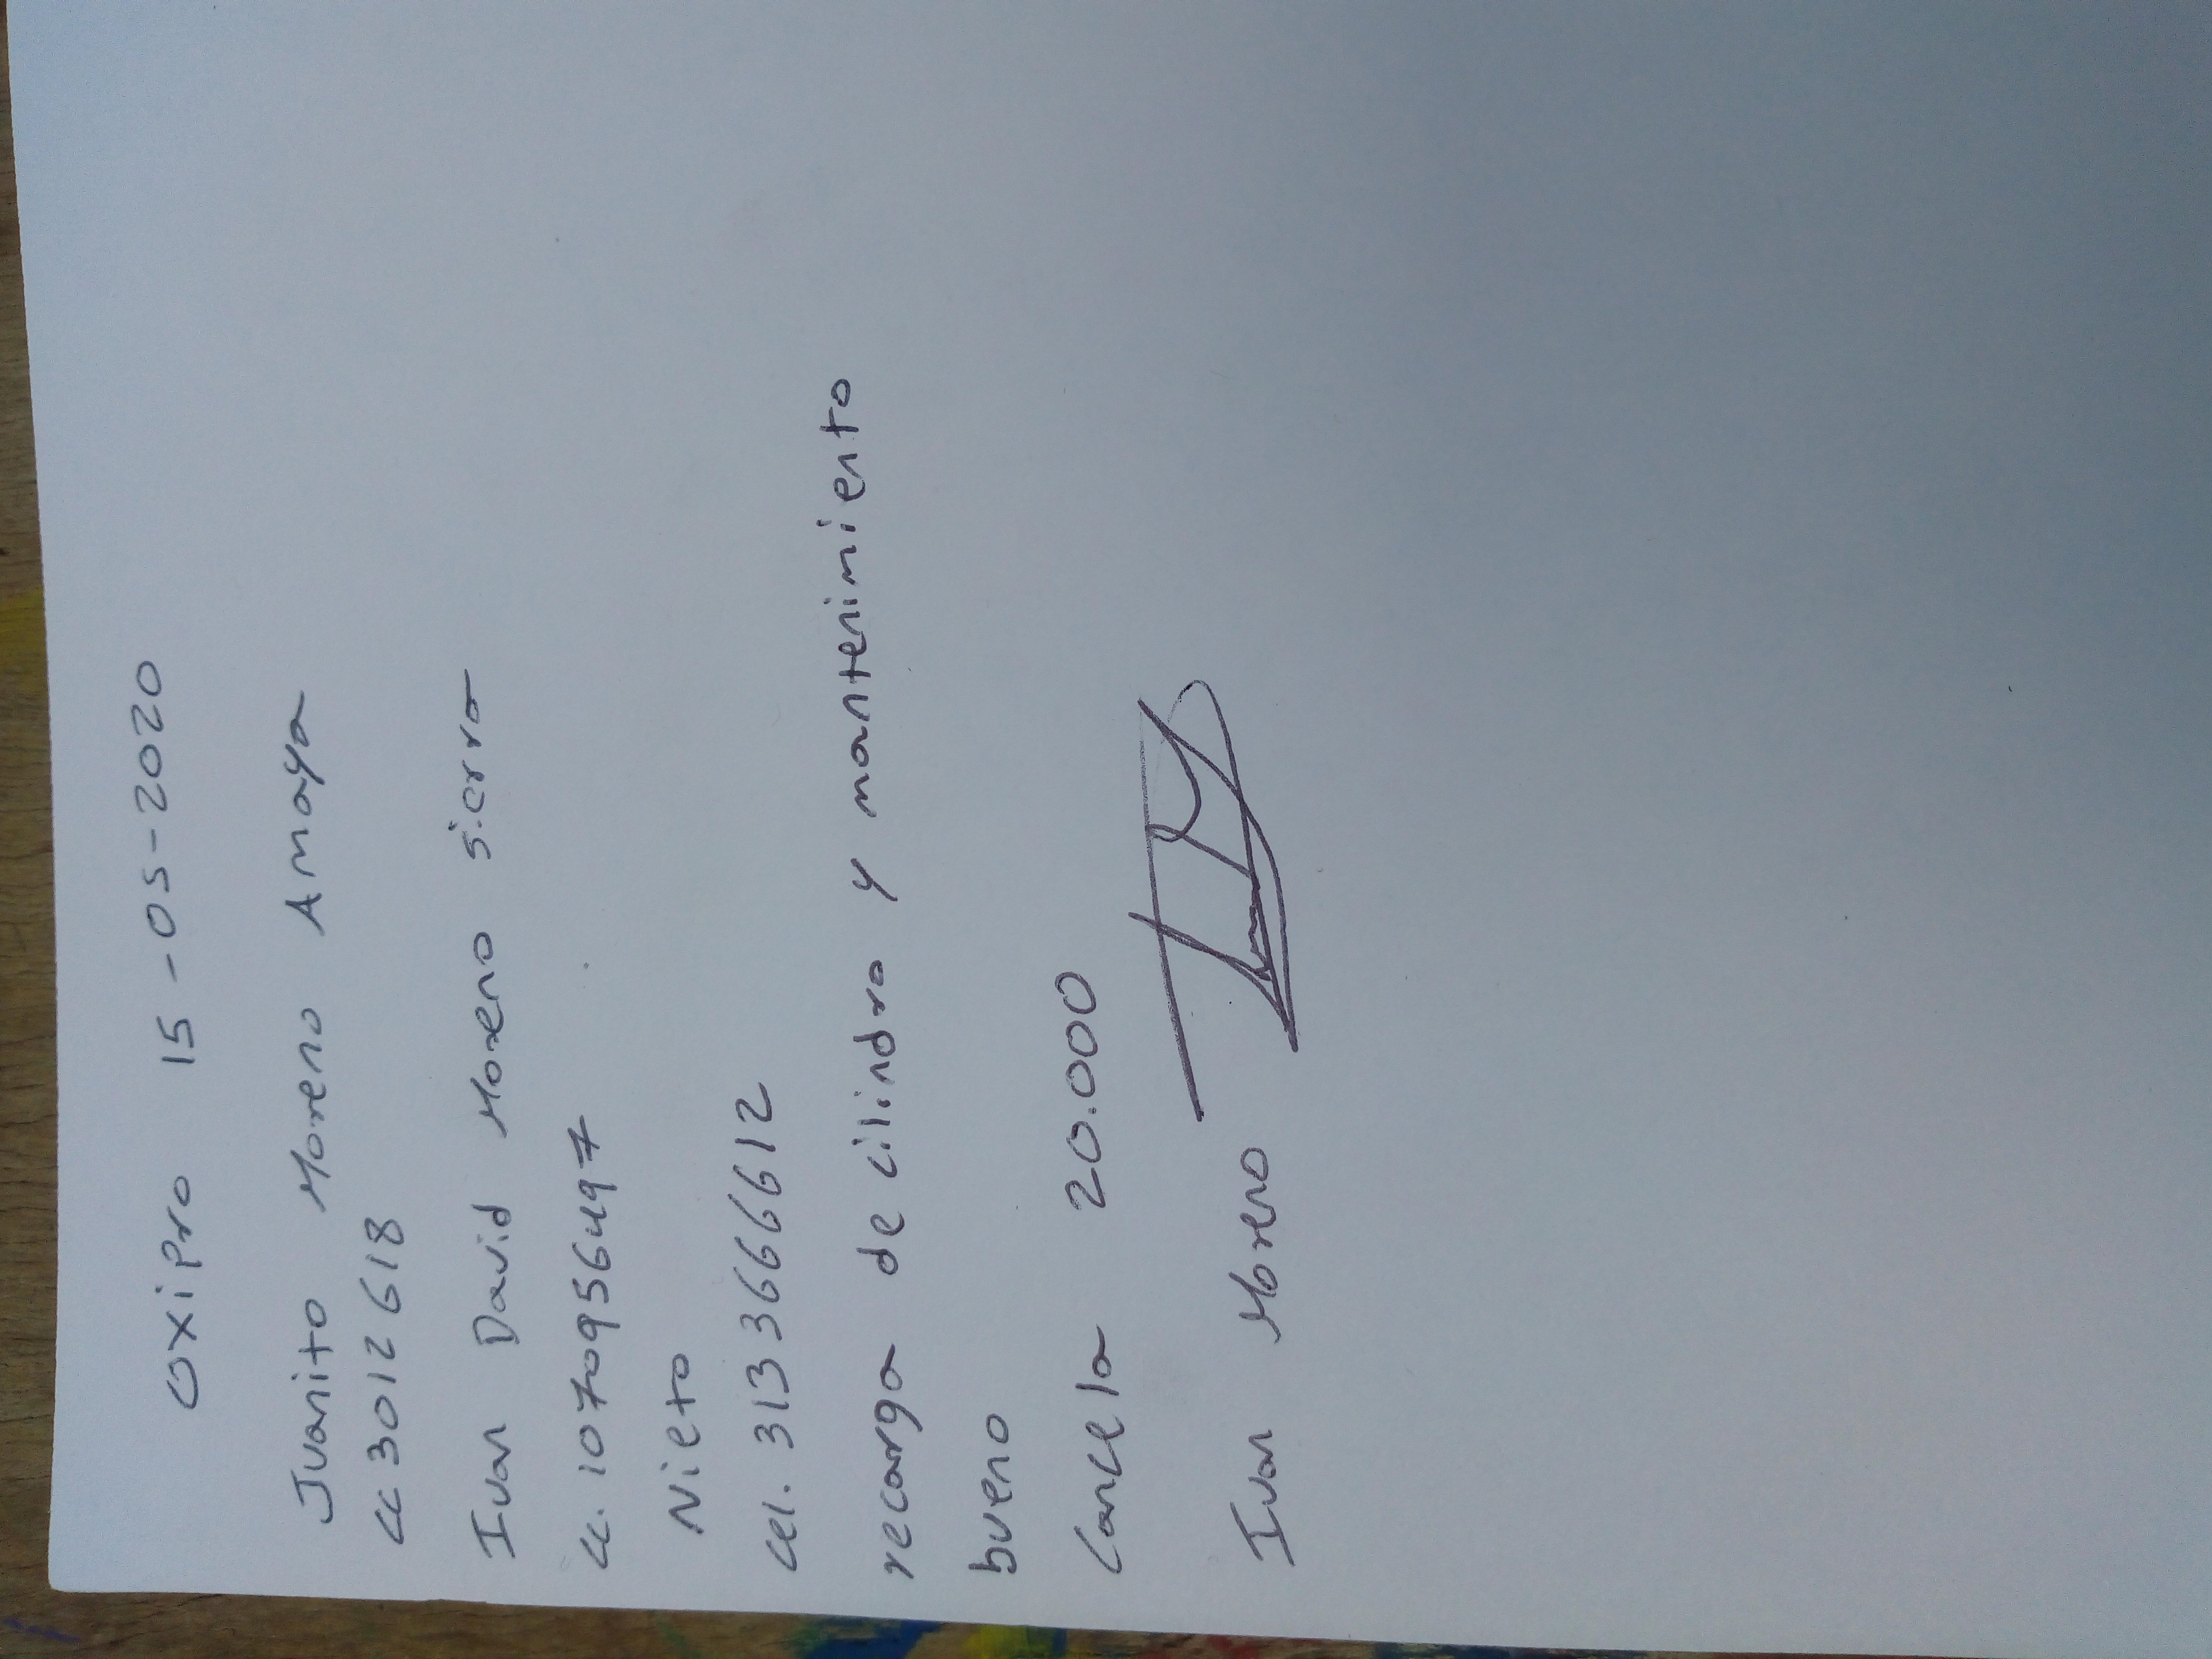 Oxipro 15-05-2020
Juanito Moreno Amaya
cc 3012618
Ivan David Moreno Sierra
cc. 1070956497
Nieto
cel. 3133666612
recarga de cilindro y mantenimiento
bueno
Cancela 20.000
Ivan Moreno